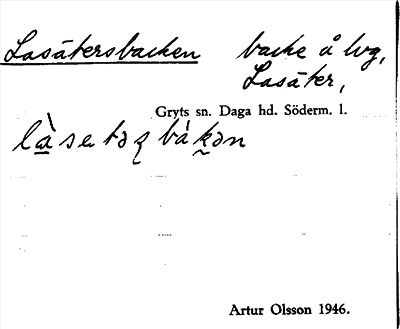 Lasätersbacken backe å lvg,
Lasäter,
Gryts sn. Daga hd. Söderm. l.
Artur Olsson 1946.